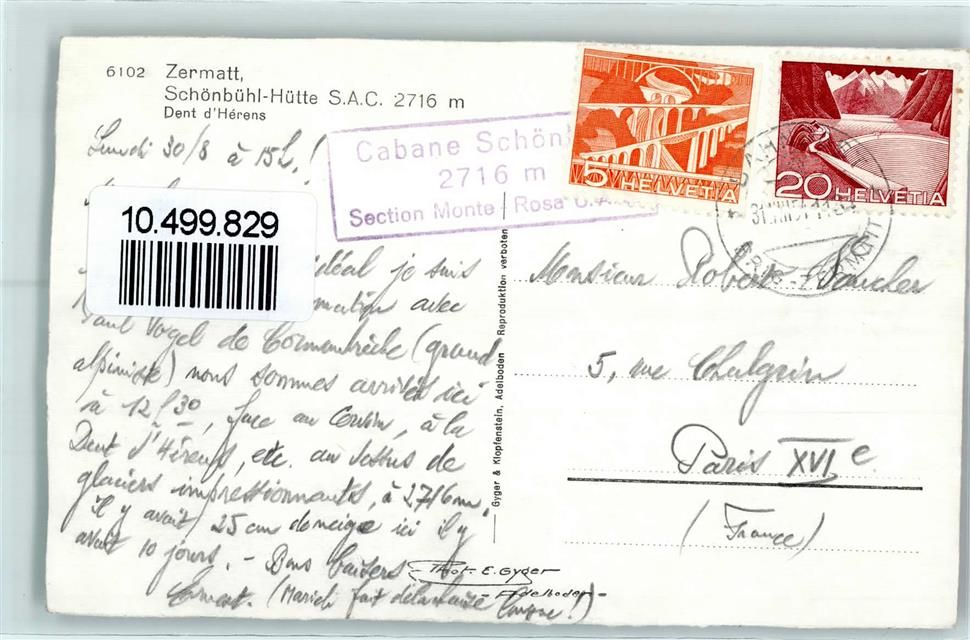 6102 Zermatt,
Schönbühl-Hütte S.A.C. 2716 m
Dent d'Hérens
Lundi 30/8 à 15h.!
Cabane Schön
2716 m
Section Monte Rosa
5 HELVETIA
20 HELVETIA
10.499.829
idéal je suis
matin avec
Paul Vogel de Cormondrèche (grand
alpiniste) nous sommes arrivés ici
à 12h30, face au Cervin, à la
Dent d'Hérens, etc. au dessus de
glaciers impressionnants, à 2716m.
il y avait 25 cm de neige ici il y
avait 10 jours. - Bons baisers
(Marich fait de la chaise longue!)
Gyger & Klopfenstein, Adelboden Reproduktion verboten
Phot. E. Gyger
- Adelboden -
Monsieur Robert
5, rue Chalgrin
Paris XVIe.
(France)